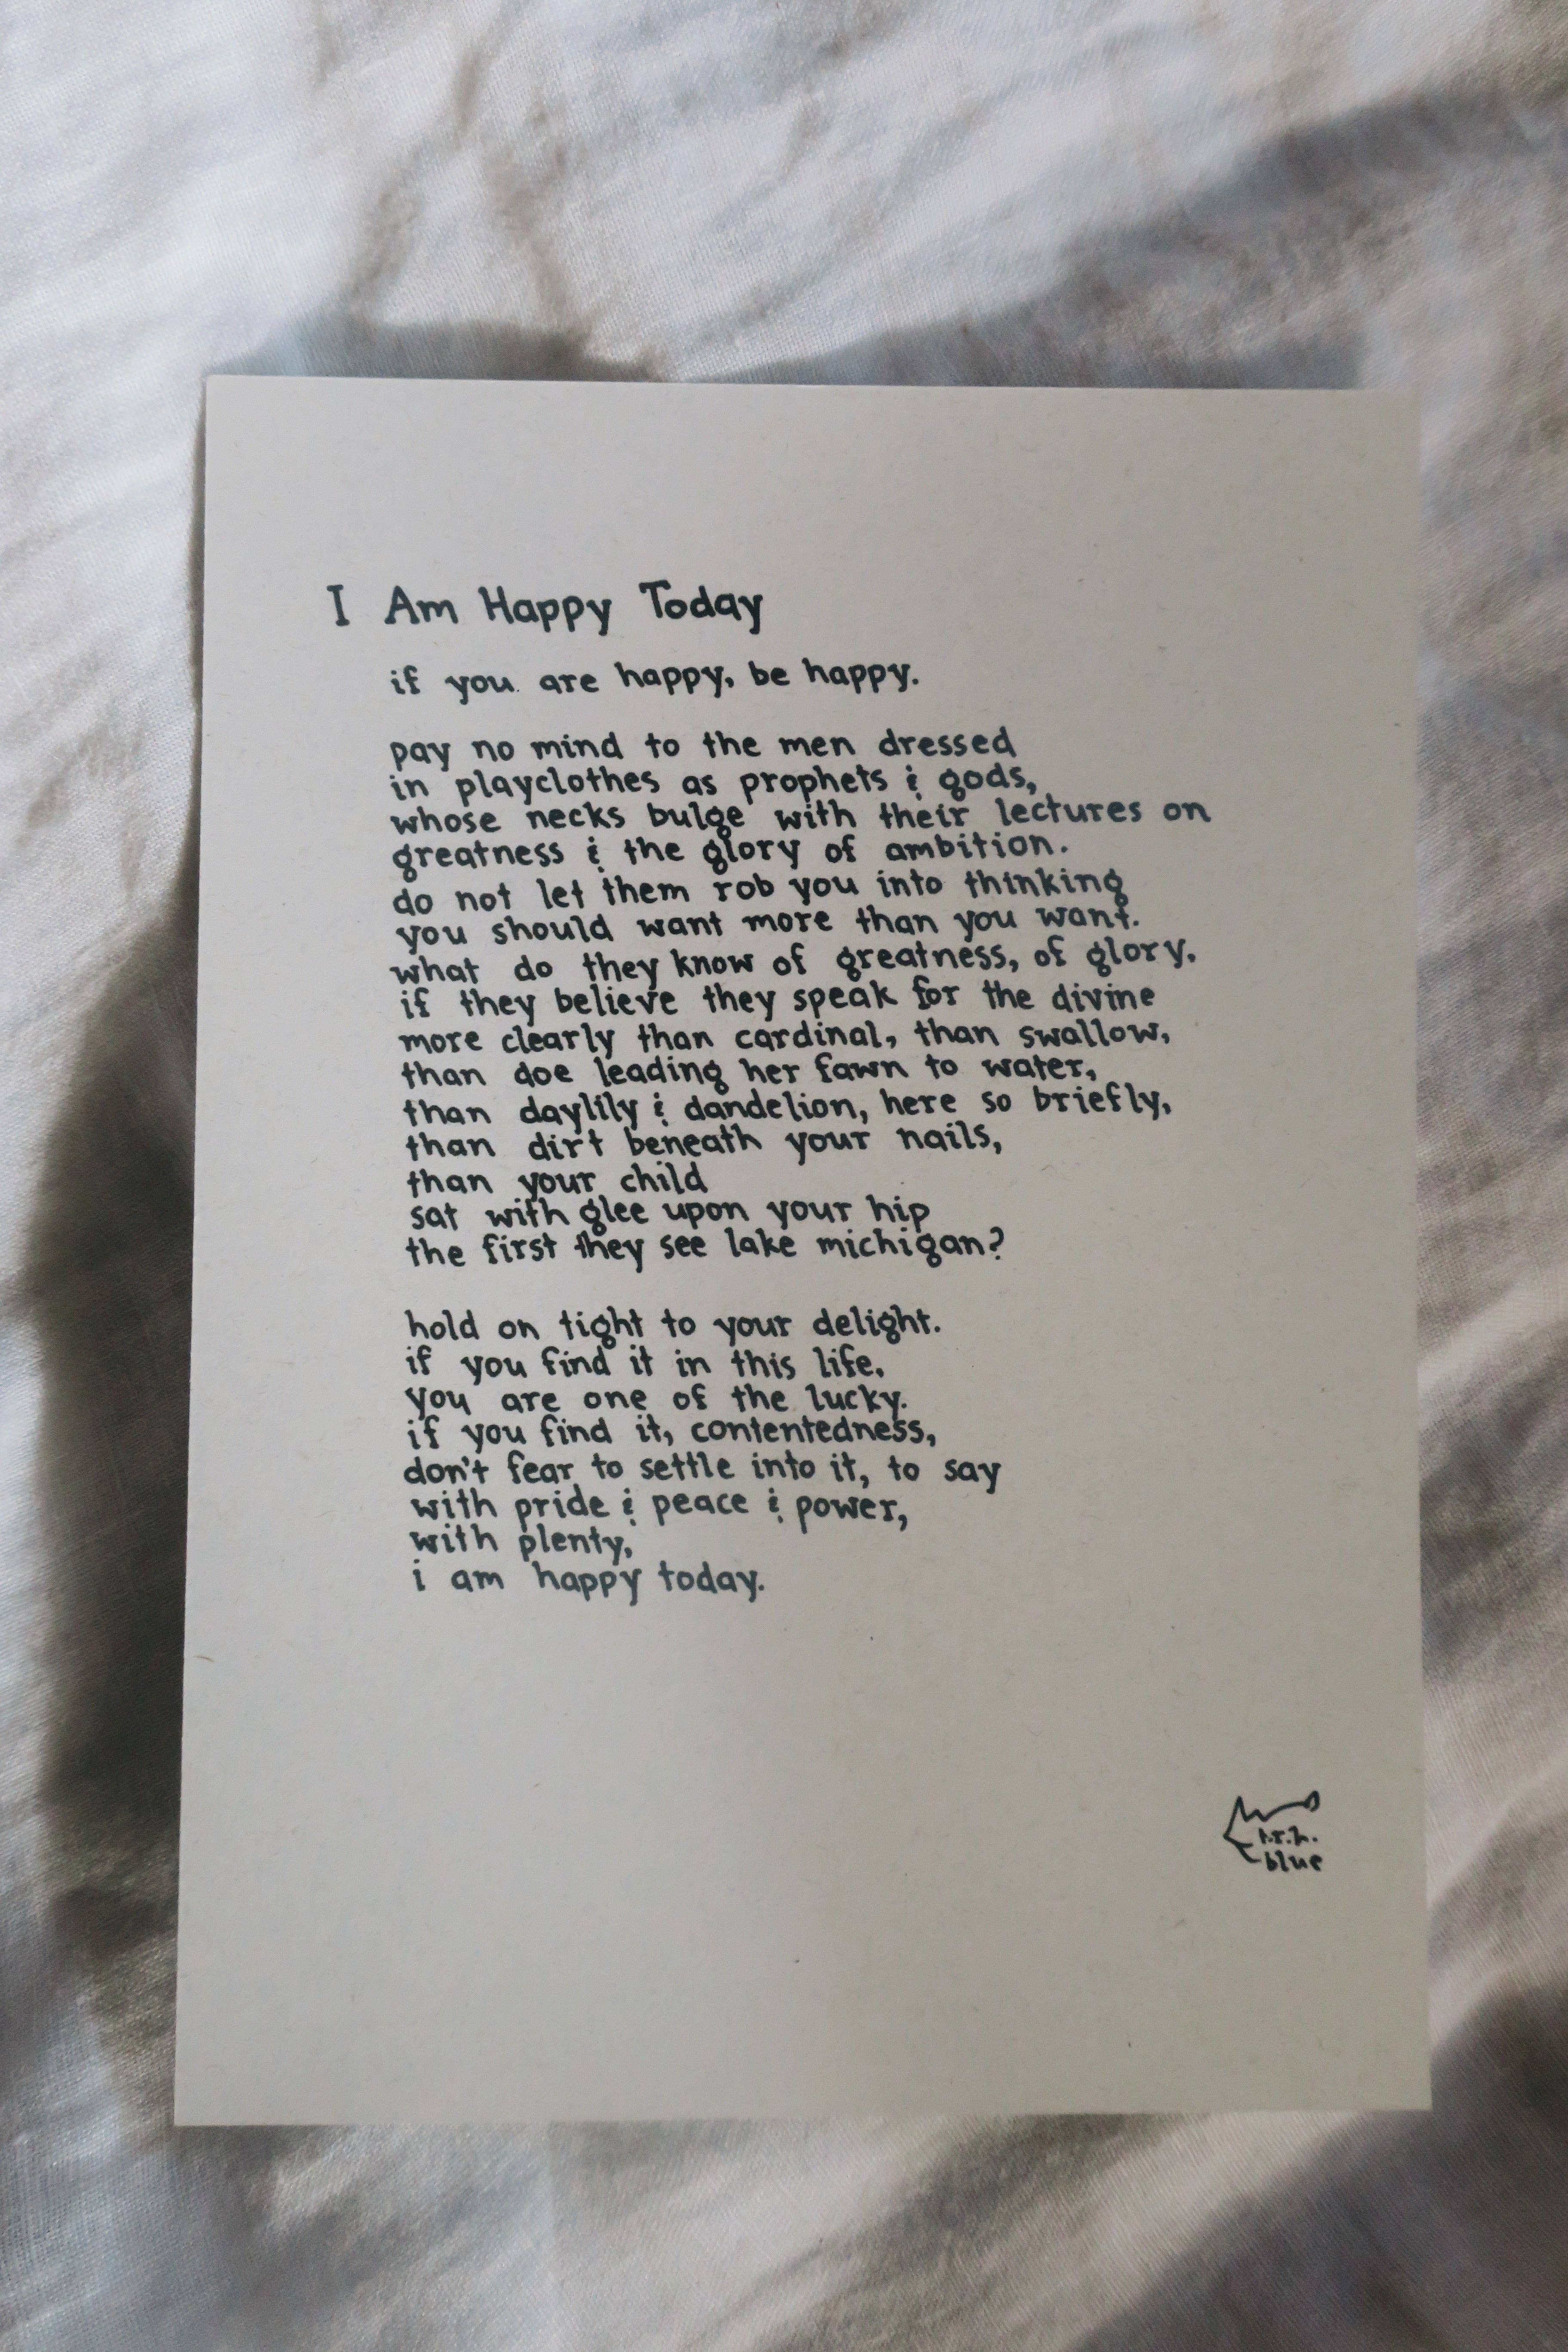 I Am Happy Today
if you are happy, be happy.
pay no mind to the men dressed
in playclothes as prophets & gods,
whose necks bulge with their lectures on
greatness & the glory of ambition.
do not let them rob you into thinking
you should want more than you want.
what do they know of greatness, of glory,
if they believe they speak for the divine
more clearly than cardinal, than swallow,
than doe leading her fawn to water,
than daylily & dandelion, here so briefly,
than dirt beneath your nails,
than your child
sat with glee upon your hip
the first they see lake michigan?
hold on tight to your delight.
if you find it in this life,
you are one of the lucky.
if you find it, contentedness,
don't fear to settle into it, to say
with pride & peace & power,
with plenty,
i am happy today.
blue